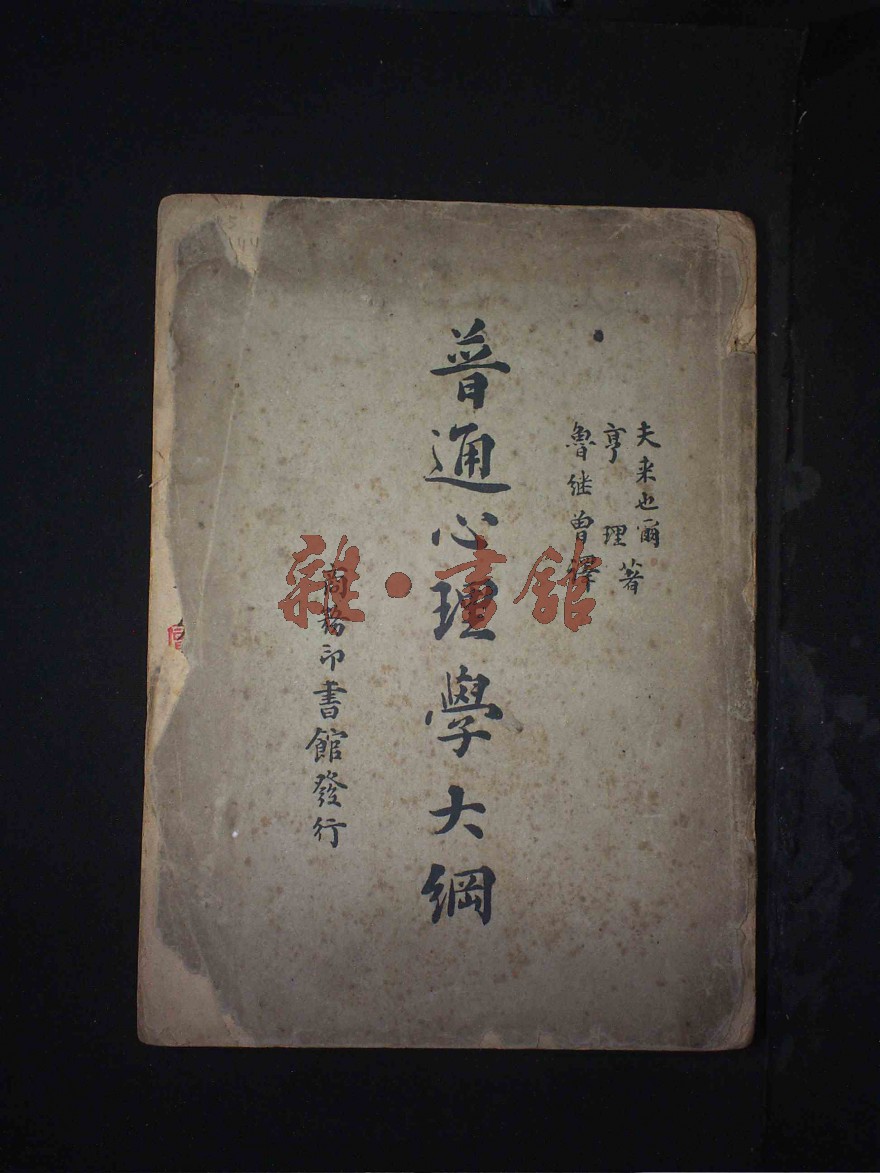 夫来也爾
亨理著
魯继曽譯
普通心理學大綱
商務印書館發行
雜·書館